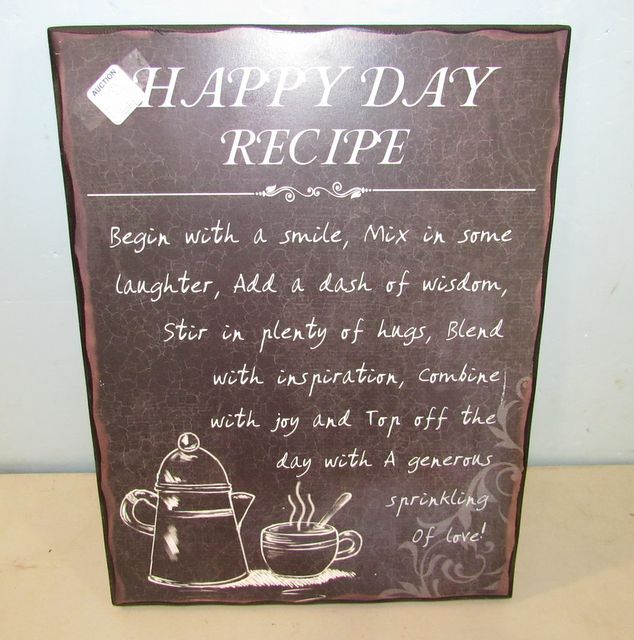 AUCTION
HAPPY DAY
RECIPE
Begin with a smile, Mix in some
laughter, Add a dash of wisdom,
Stir in plenty of hugs, Blend
with inspiration, Combine
with joy and Top off the
day with A generous
sprinkling
Of love!